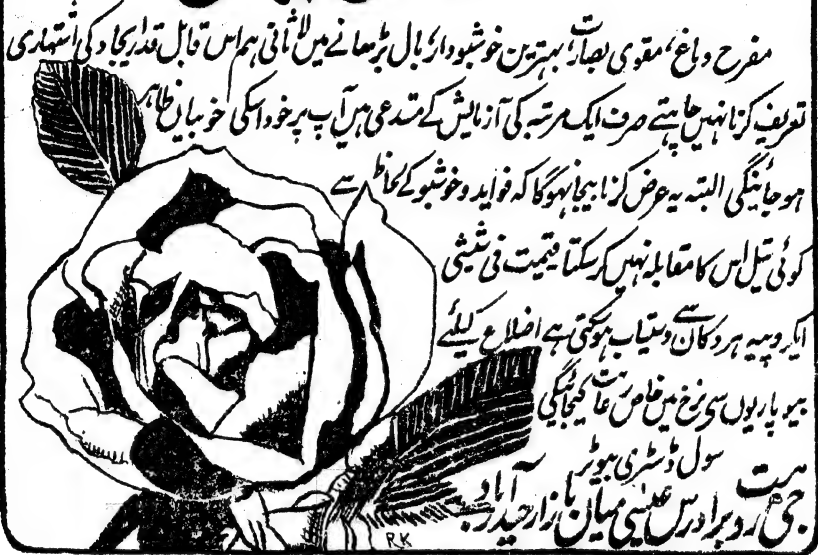 مفرح دماغ، مقوی بصارت، بہترین خوشبودار، بال بڑھانے میں لاثانی ہم اس قابل قدر ایجاد کی اشتہاری
تعریف کرنا نہیں چاہتے صرف ایک مرتبہ کی آزمایش کے متدعی ہیں آپ پر خود اسکی خوبیاں ظاہر
ہوجائینگی البتہ یہ عرض کرنا بیجا نہوگا کہ فواید و خوشبو کے لحاظ سے
کوئی تیل اس کا مقابلہ نہیں کرسکتا قیمت فی شیشی
ایکروپیہ ہر دکان سے دستیاب ہوسکتی ہے اضلاع کیلئے
بیوپاریوں سی نرخ میں خاص رعایت کیجائیگی
سول ڈسٹری بیوٹر
برادرس عیسیٰ میاں بازار حیدرآباد
RK